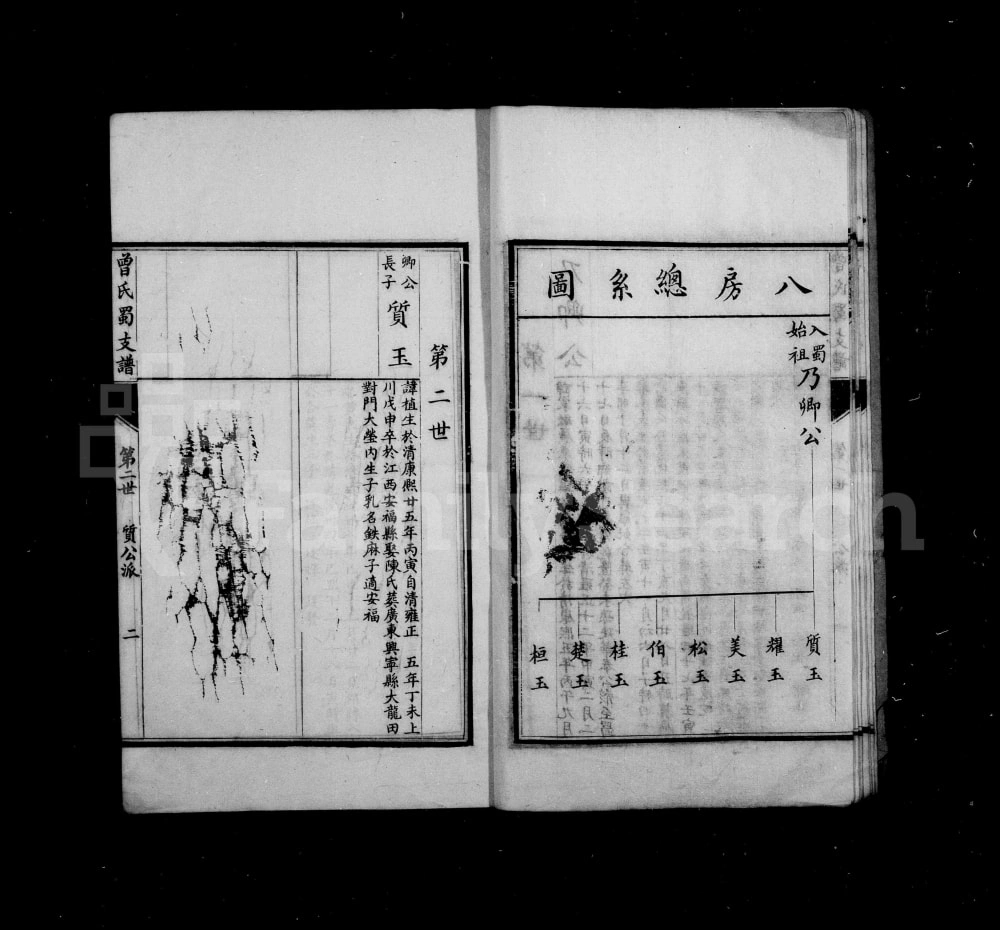 八房總系圖
入蜀
始祖
乃卿公
質玉
耀玉
美玉
松玉
伯玉
桂玉
楚玉
桓玉
第二世
卿公
長子
質玉
諱植生於清康熙廿五年丙寅自清雍正 五年丁未上
川戊申卒於江西安福縣娶陳氏葬廣東興寧縣大龍田
對門大塋内生子乳名鉄麻子適安福
曾氏蜀支譜
第二世 質公派
二
FamilySearch